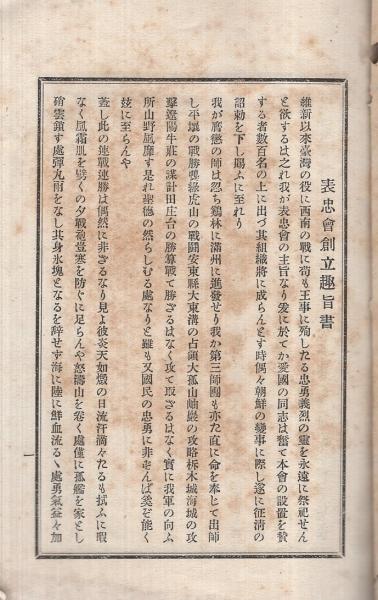 表忠會創立趣旨書
維新以來臺灣の役に西南の戰に苟も王事に殉したる忠勇義烈の靈を永遠に祭祀せん
と欲するは之れ我が表忠會の主旨なり爰に於てか愛國の同志は奮て本會の設置を贊
する者數百名の上に出づ其組織將に成らんとす時偶々朝鮮の變事に際し遂に征淸の
詔勅を下し賜ふに至れり
我が膺懲の師は忽ち鷄林に滿州に進發せり我か第三師團も亦た直に命を奉して出師
し平壤の戰勝鴨綠虎山の戰鬪安東縣大東溝の占領大孤山岫巖の攻略柝木城海城の攻
擊遼陽牛莊の謀計田庄台の勝算戰て勝さるはなく攻て取さるはなく實に我軍の向ふ
所山野風靡す是れ聖德の然らしむる處なりと雖も又國民の忠勇に非ずんば奚ぞ能く
玆に至らんや
蓋し此の連戰連勝は偶然に非ざるなり見よ彼炎天如燬の日流汗滴々たるも拭ふに暇
なく風霜肌を劈くの夕戰袍豈寒を防ぐに足らんや怒濤山を卷く處僅に孤艦を家とし
硝雲鎖す處彈丸雨をなし其身氷塊となるを辭せす海に陸に鮮血流るゝ處勇氣益々加
一